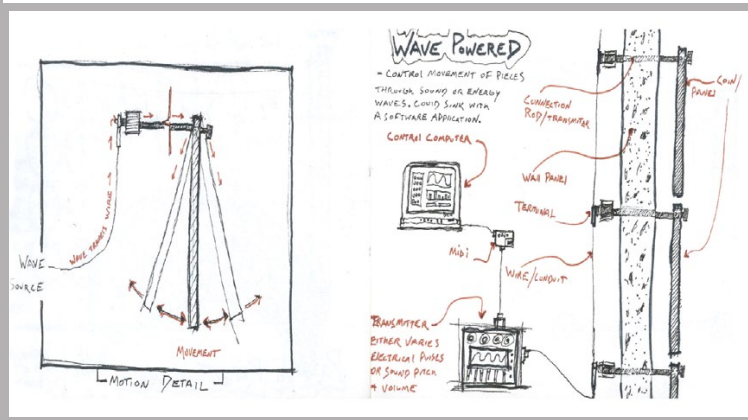 WAVE
SOURCE
WAVE TRAVELS WIRE
MOVEMENT
MOTION DETAIL
WAVE POWERED
- CONTROL MOVEMENT OF PIECES
THROUGH SOUND OR ENERGY
WAVES. COULD SINK WITH
A SOFTWARE APPLICATION.
CONTROL COMPUTER
MIDI
TRANSMITTER
EITHER VARIES
ELECTRICAL PULSES
OR SOUND PITCH
+ VOLUME
CONNECTION
ROD/TRANSMITOR
WALL PANEL
TERMINAL
WIRE/CONDUIT
COIN/
PANEL